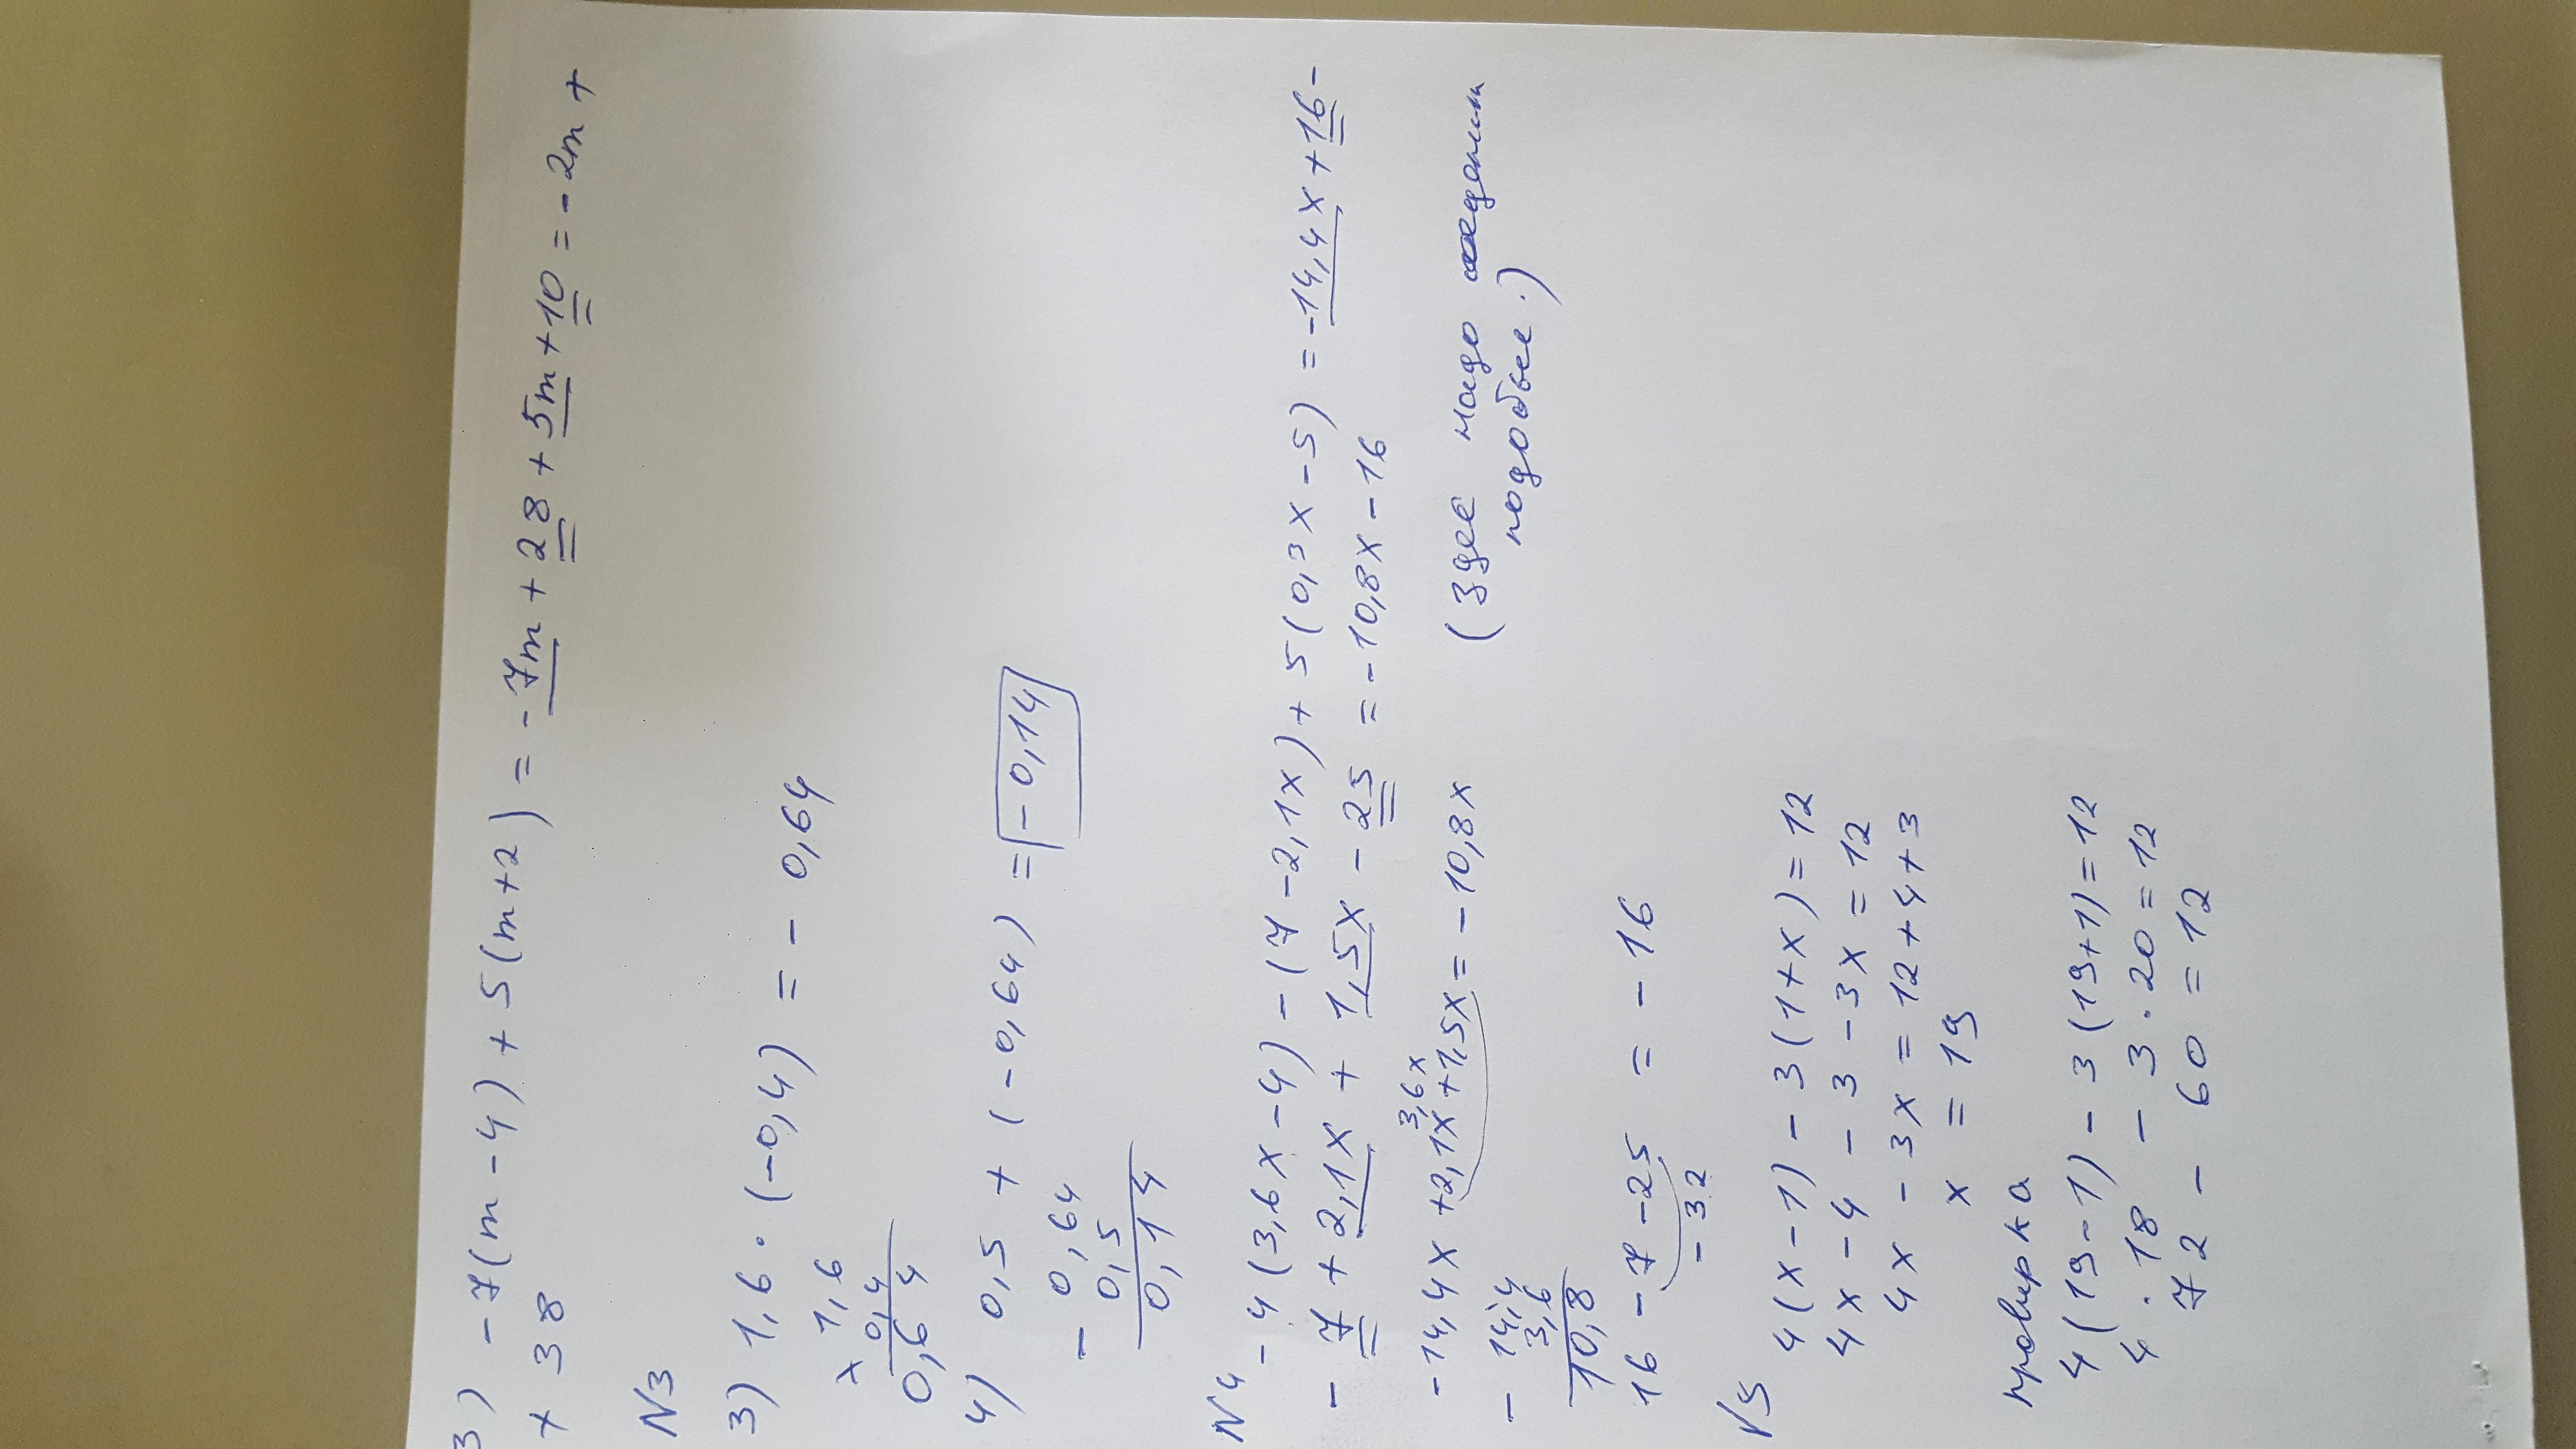 3) -7(m-4)+5(m+2)=-7m+28+5m+10=-2m+
+38
N3
3) 1,6·(-0,4)=-0,64
× 1,6
0,4
0,64
4) 0,5+(-0,64)=-0,14
- 0,64
0,5
0,14
N4 -4(3,6x-4)-(7-2,1x)+5(0,3x-5)=-14,4x+16-
-7+2,1x+1,5x-25=-10,8x-16
3,6x
-14,4x+2,1x+1,5x=-10,8x (Здес надо
подобые.)
- 14,4
3,6
10,8
16-7-25=-16
-32
N5 4(x-1)-3(1+x)=12
4x-4-3-3x=12
4x-3x=12+4+3
x=19
провирка
4(19-1)-3(19+1)=12
4·18-3·20=12
72-60=12